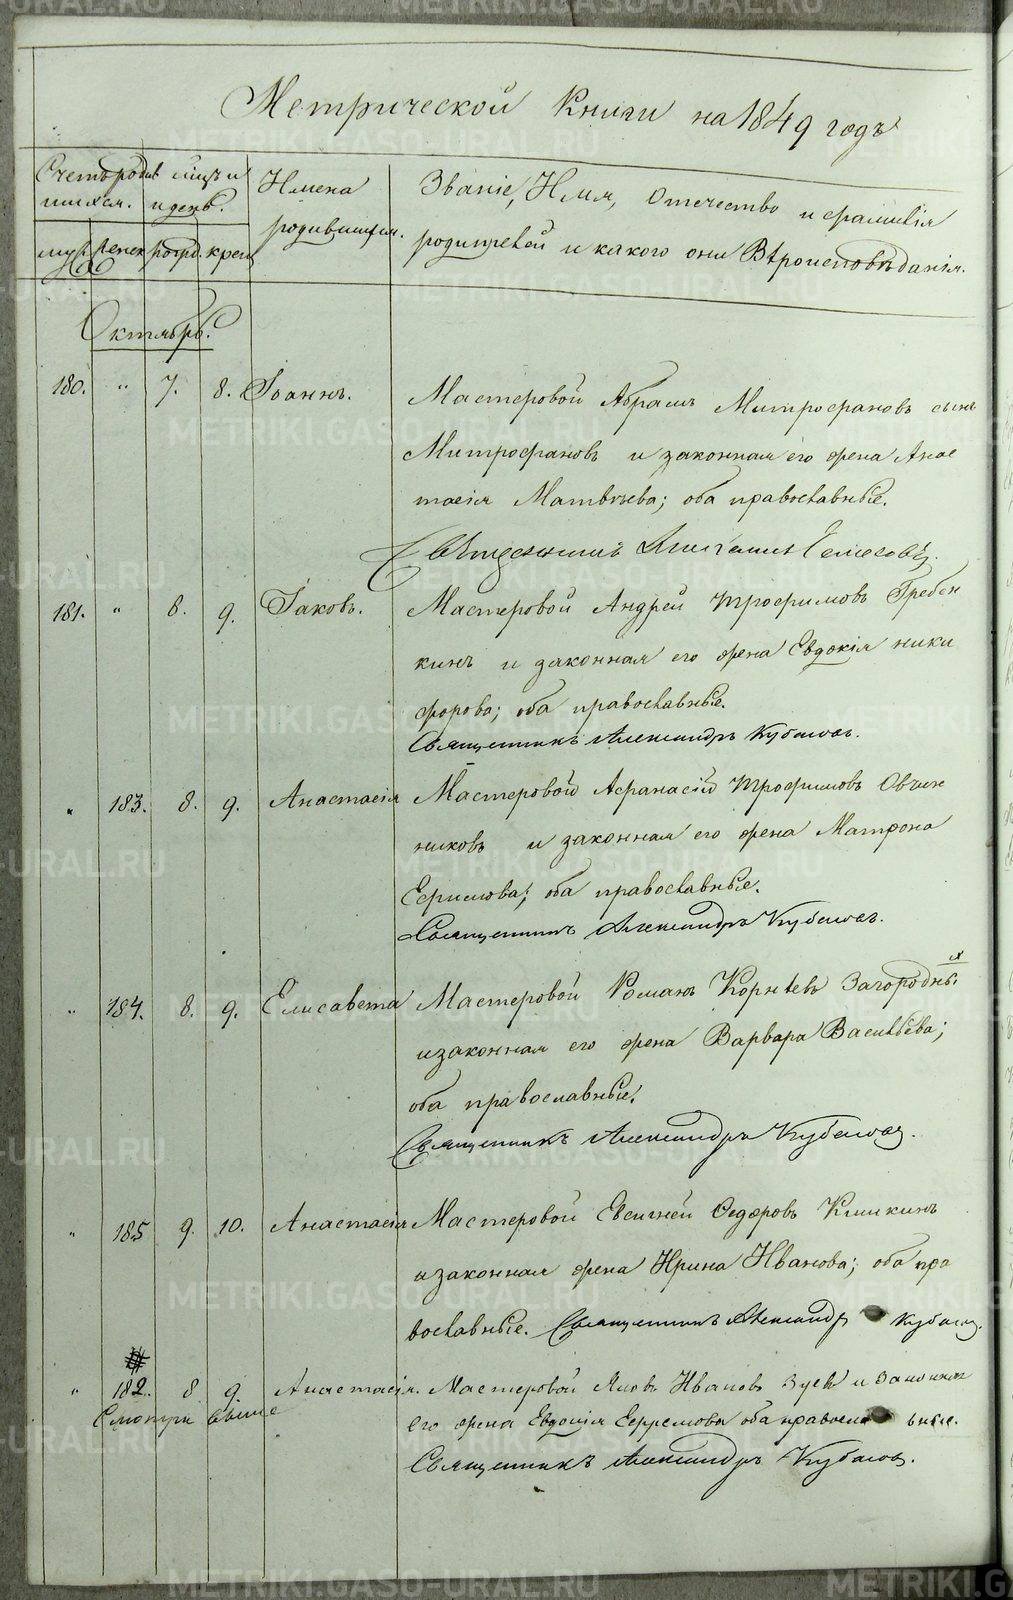 Метрической Книги на 1849 годъ
Счетъ родив мцъ и Имена Званіе, Имя, Отечество и фамилія
шихся. и день. родившихся. родителей и какого они Вѣроисповѣданія.
муж. женск рожд. крещ
Октябрь.
180. " 7. 8. Іоаннъ. Мастеровой Абрамъ Митрофановъ сынъ
Митрофановъ и законная его жена Анас
тасія Матвѣева; оба православные.
181. " 8. 9. Іаковъ. Мастеровой Андрей Трофимовъ Гребен
кинъ и законная его жена Евдокія Ники
форова; оба православные.
Священникъ Александръ Кубасовъ.
" 183. 8. 9. Анастасія Мастеровой Афанасій Трофимовъ Овчин
никовъ и законная его жена Матрона
Ефимова; оба православные.
Священникъ Александръ Кубасовъ.
" 184. 8. 9. Елисавета Мастеровой Романъ Корнѣевъ Загородны
и законная его жена Варвара Васильева;
оба православные.
Священникъ Александръ Кубасовъ.
" 185 9. 10. Анастасія Мастеровой Евгеній Федоровъ
и законная жена Ирина Иванова; оба пра
вославные. Священникъ Александръ Кубасовъ.
" 182. 8 9. Анастасія. Мастеровой Яковъ Ивановъ Зуевъ и законная
Смотри выше его жена Евдокія Ефремова оба правосла вные.
Священникъ Александръ Кубасовъ.
METRIKI.GASO-URAL.RU